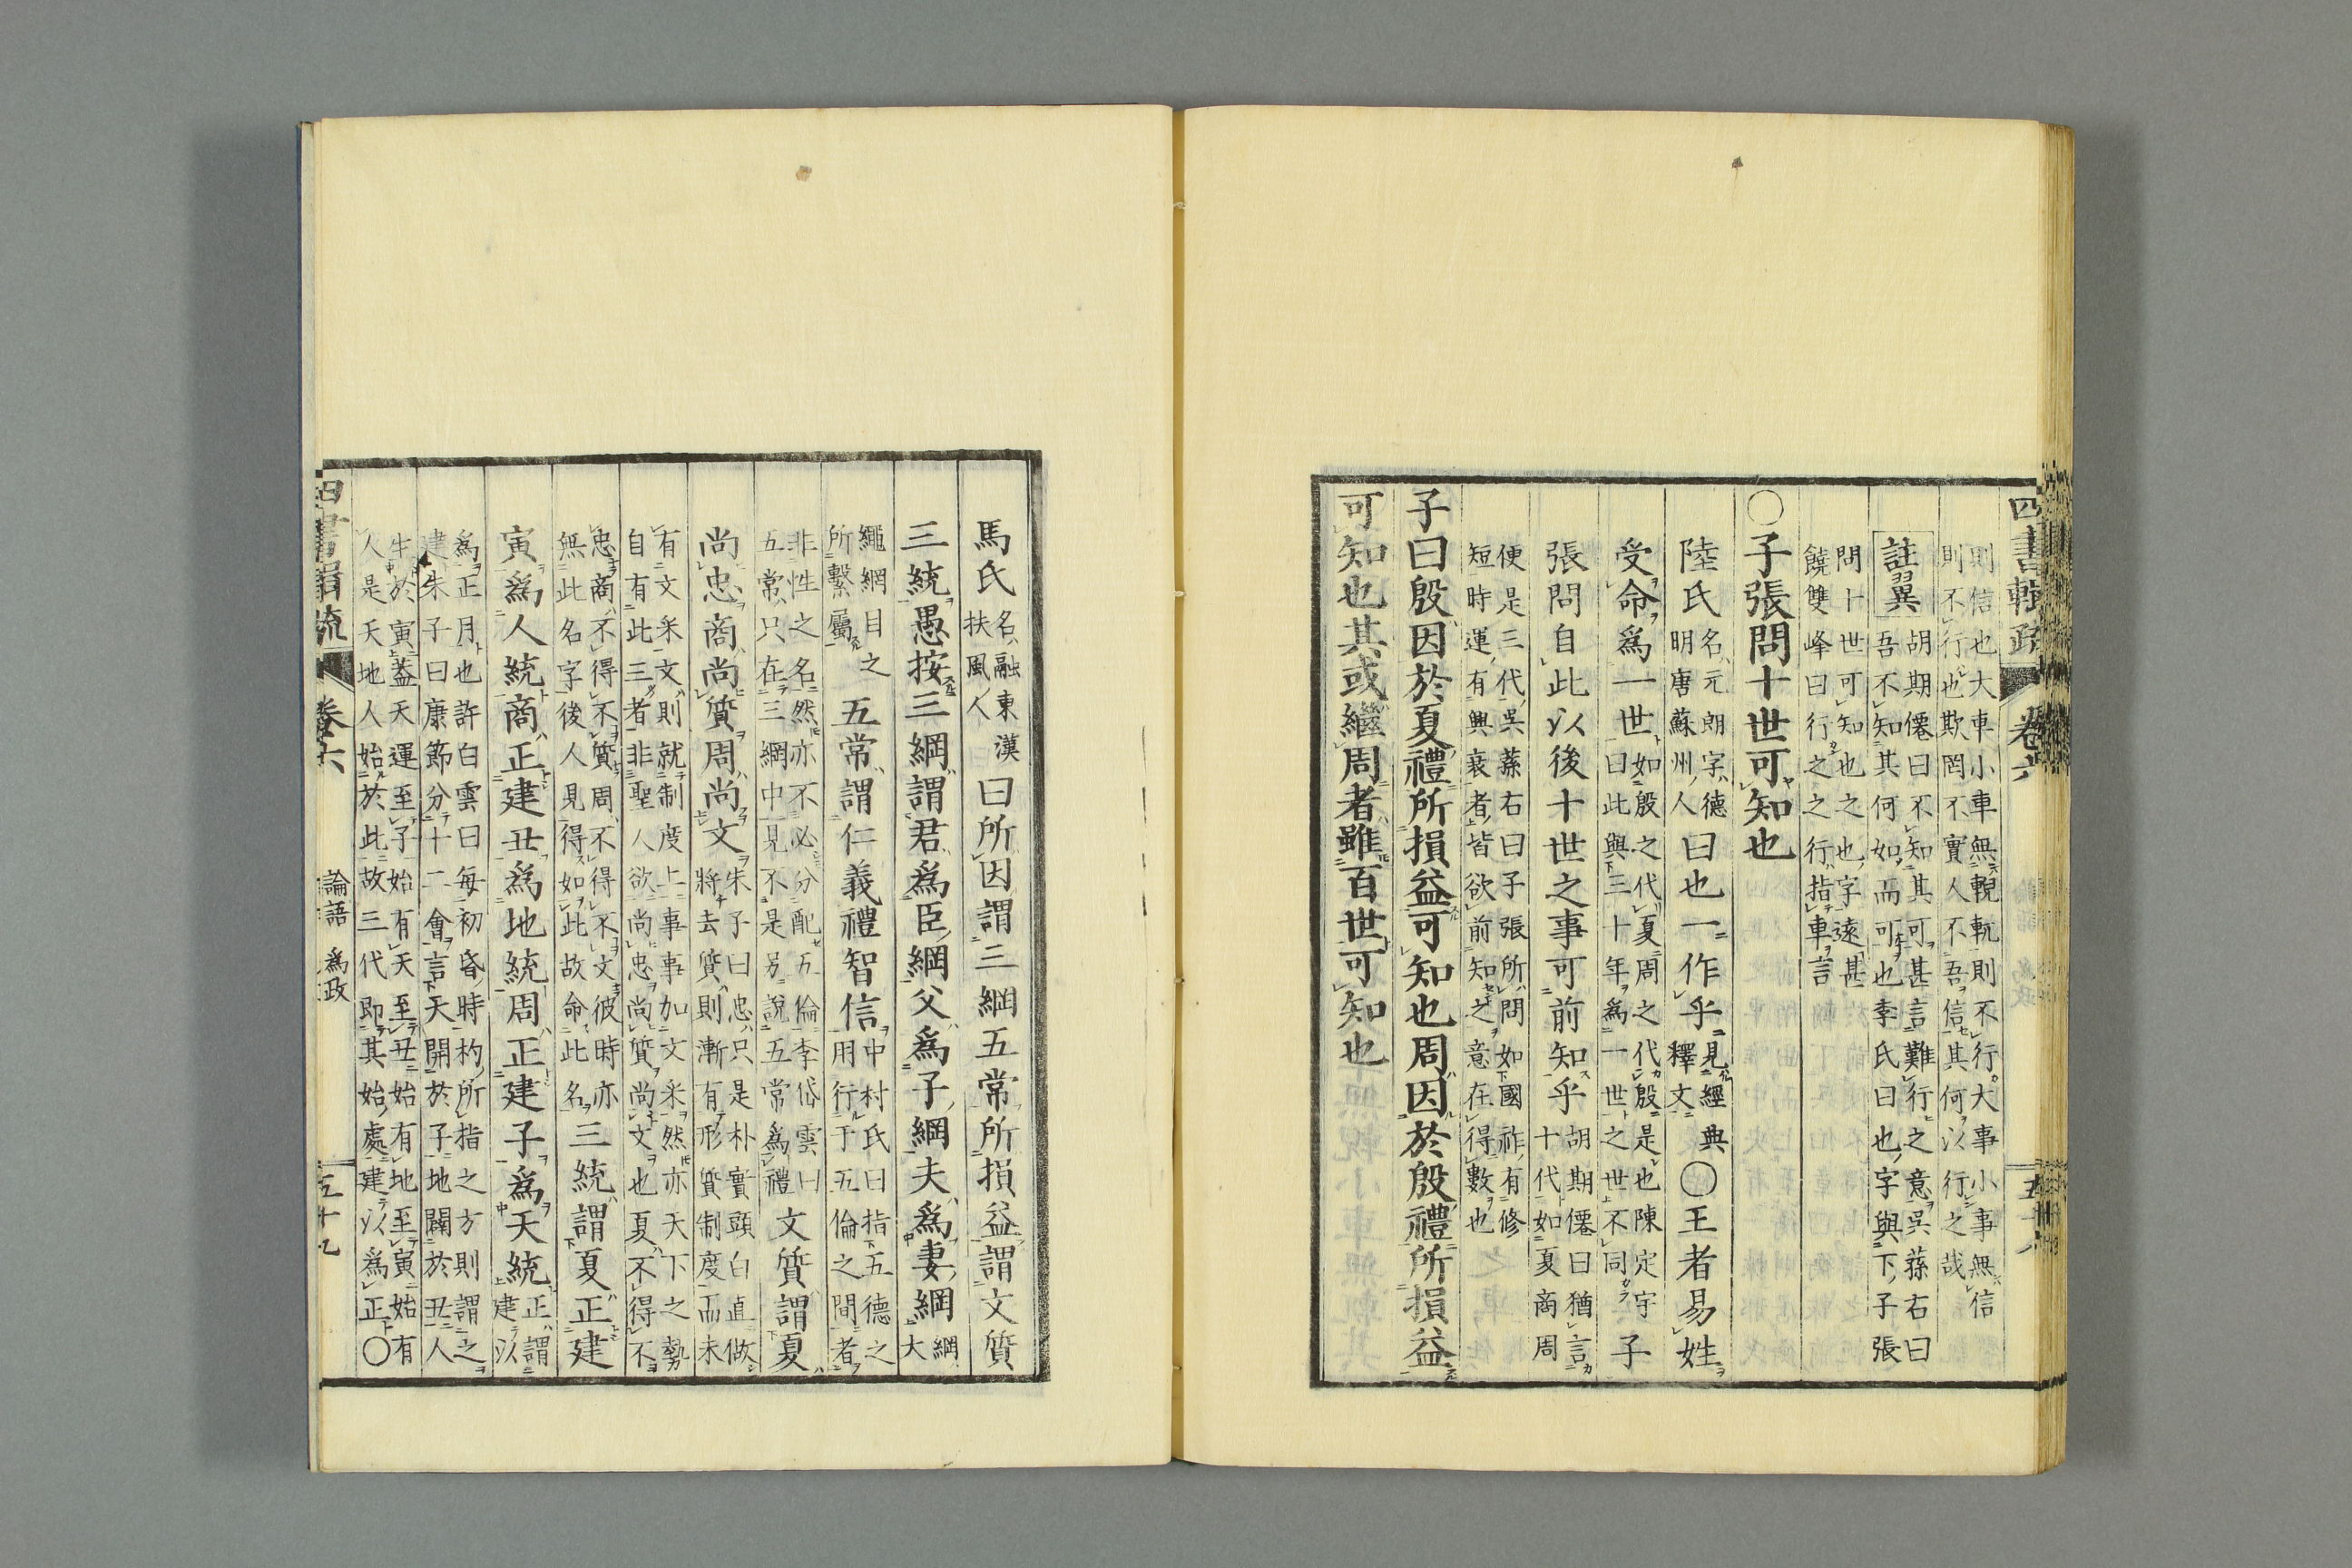 四書輯疏 卷六
則信也大車小車無輗軏則不行大事小事無信
則不行也欺罔不實人不吾信其何以行之哉
註翼 胡期僊曰不知其可甚言難行之意吳蓀右曰
吾不知其何如而可也李氏曰也字與下子張
問十世可知也之也字遠甚
饒雙峰曰行之之行指車言
○子張問十世可知也
陸氏 名元朗字德
明唐蘇州人 曰也一作乎 見經典
釋文 ○王者易姓
受命爲一世 如殷之代夏周之代殷是也陳定宇
曰此與三十年爲一世之世不同 子
張問自此以後十世之事可前知乎 胡期僊曰猶言
十代如夏商周
便是三代吳蓀右曰子張所問如國祚有修
短時運有興衰者皆欲前知之意在得數也
子曰殷因於夏禮所損益可知也周因於殷禮所損益
可知也其或繼周者雖百世可知也
馬氏 名融東漢
扶風人 曰所因謂三綱五常所損益謂文質
三統愚按三綱謂君爲臣綱父爲子綱夫爲妻綱 綱
大
繩網目之
所繫屬 五常謂仁義禮智信 中村氏曰指五德之
用行于五倫之間者
非性之名然亦不必分配五倫李岱雲曰
五常只在三綱中見不是另說五常爲禮 文質謂夏
尚忠商尚質周尚文 朱子曰忠只是朴實頭白直做
將去質則漸有形質制度而未
有文采文則就制度上事事加文采然亦天下之勢
自有此三者非聖人欲尚忠尚質尚文也夏不得不
忠商不得不質周不得不文彼時亦
無此名字後人見得如此故命此名 三統謂夏正建
寅爲人統商正建丑爲地統周正建子爲天統 正謂
建以
爲正月也許白雲曰每初昏時杓所指之方則謂之
建朱子曰康節分十二會言天開於子地闢於丑人
生於寅蓋天運至子始有天至丑始有地至寅始有
人是天地人始於此故三代即其始處建以爲正○
卷六 論語 爲政 五十九